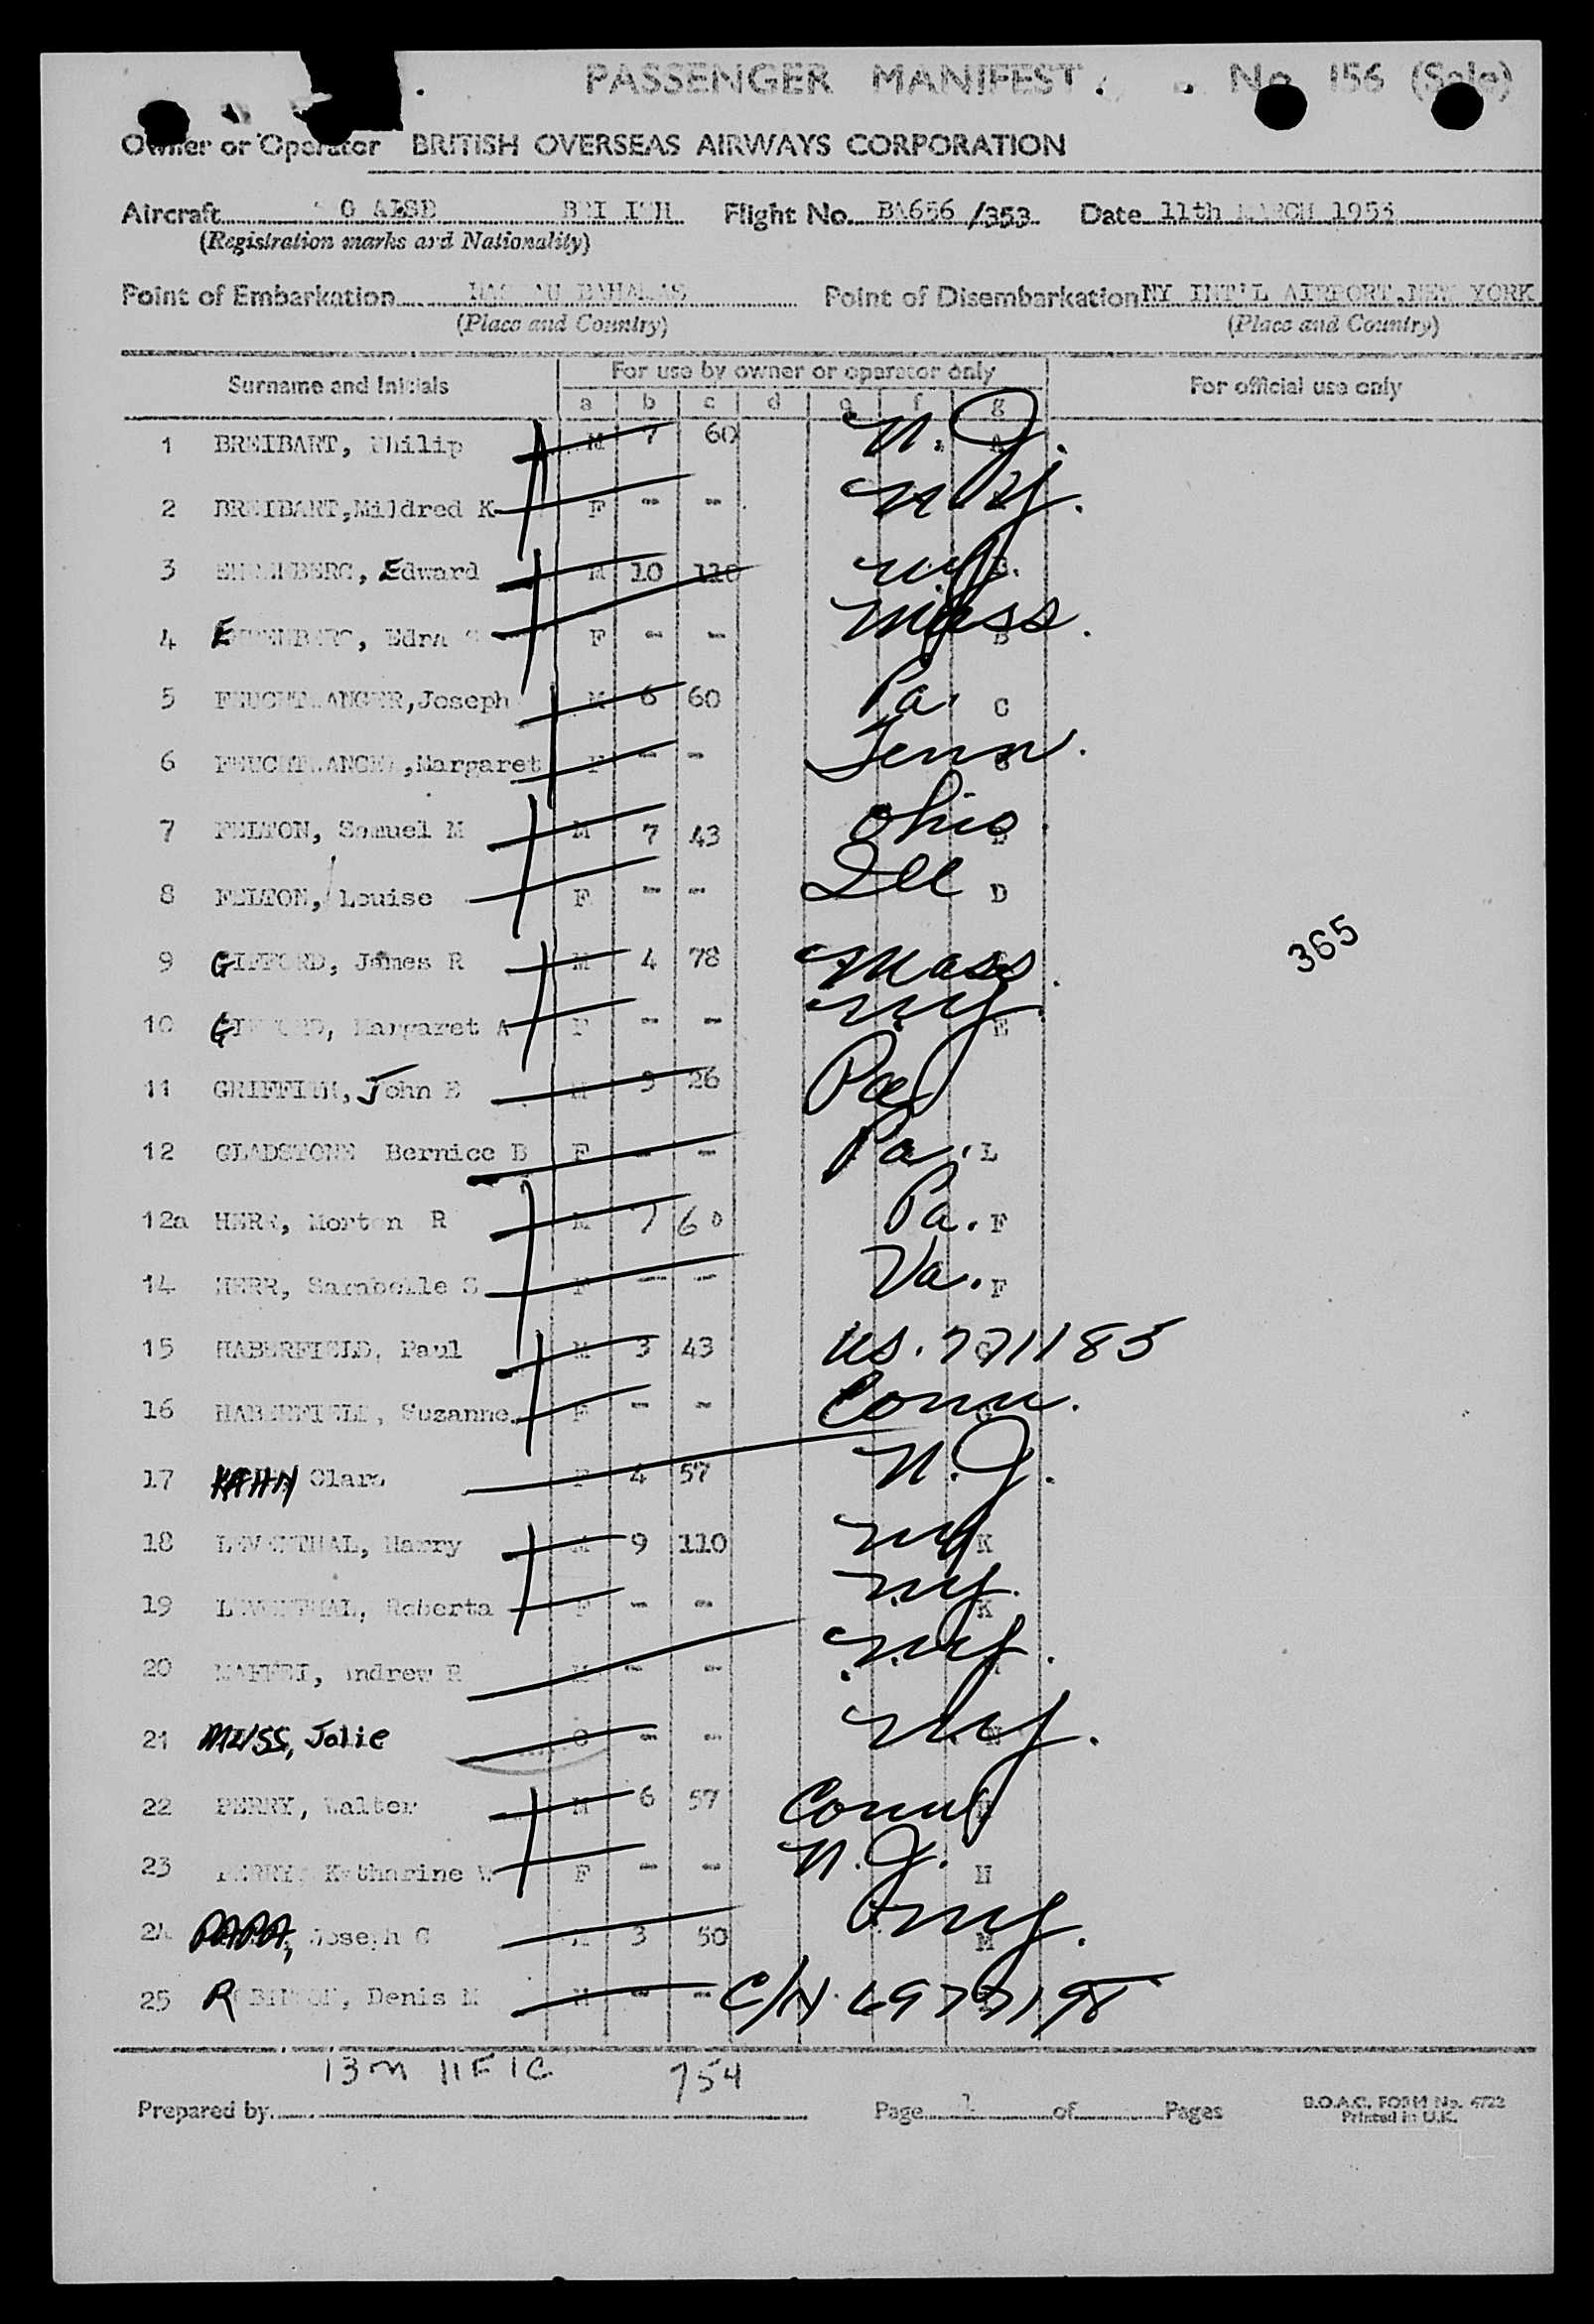 PASSENGER MANIFEST. No 156
Owner or Operator BRITISH OVERSEAS AIRWAYS CORPORATION
Aircraft Flight No. BA656 /353 Date 11th MARCH 1953
(Registration marks and Nationality)
Point of Embarkation NASSAU BAHAMAS Point of Disembarkation NY INT'L AIRPORT, NEW YORK
(Place and Country) (Place and Country)
Surname and Initials For use by owner or operator only For official use only
a b c d e f g
1 BREIBART, Philip M 7 60 N.J. A
2 BREIBART, Mildred K F - - N.Y.
3 Edward M 10 110 N.Y.
4 F - - Mass. B
5 Joseph M 6 60 Pa. C
6 Margaret F - - Tenn.
7 FELTON, Samuel M M 7 43 Ohio
8 FELTON, Louise F - - Ill D
9 GIFFORD, James R M 4 78 Mass.
10 GIFFORD, Margaret A F - - N.Y. E
11 John E M 26 Pa
12 GLADSTONE Bernice B F - - Pa. L
12a HERR, Morton R M 7 60 Pa. F
14 HERR, Sarabelle S F - - Va. F
15 HABERFIELD, Paul M 3 43 US. 771185
16 HABERFIELD, Suzanne F - - Conn.
17 KAHN Clara F 4 57 N.J.
18 LEVENTHAL, Harry M 9 110 N.Y. K
19 LEVENTHAL, Roberta F - - N.Y. K
20 Andrew M - - N.Y.
21 Jolie C - - N.Y. N
22 PERRY, Walter M 6 57 Conn H
23 PERRY, Katharine W F - - N.J. H
24 PAPA, Joseph C 3 50 N.Y. M
25 Denis M M - - C/N
13M 11F 1C 754
Prepared by Page 1 of Pages B.O.A.C. FORM No. 4722
Printed in U.K.
365